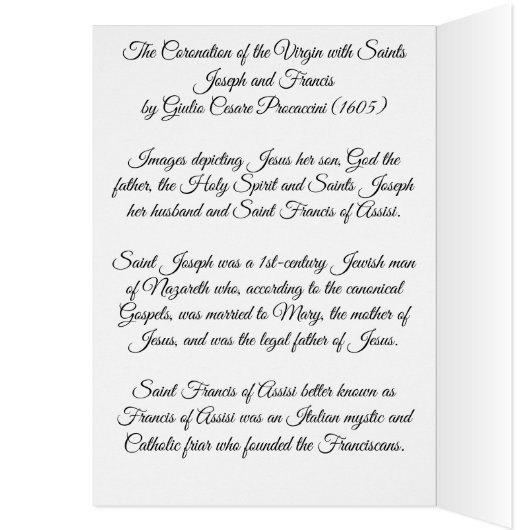 The Coronation of the Virgin with Saints
Joseph and Francis
by Giulio Cesare Procaccini (1605)
Images depicting Jesus her son, God the
father, the Holy Spirit and Saints Joseph
her husband and Saint Francis of Assisi.
Saint Joseph was a 1st-century Jewish man
of Nazareth who, according to the canonical
Gospels, was married to Mary, the mother of
Jesus, and was the legal father of Jesus.
Saint Francis of Assisi better known as
Francis of Assisi was an Italian mystic and
Catholic friar who founded the Franciscans.